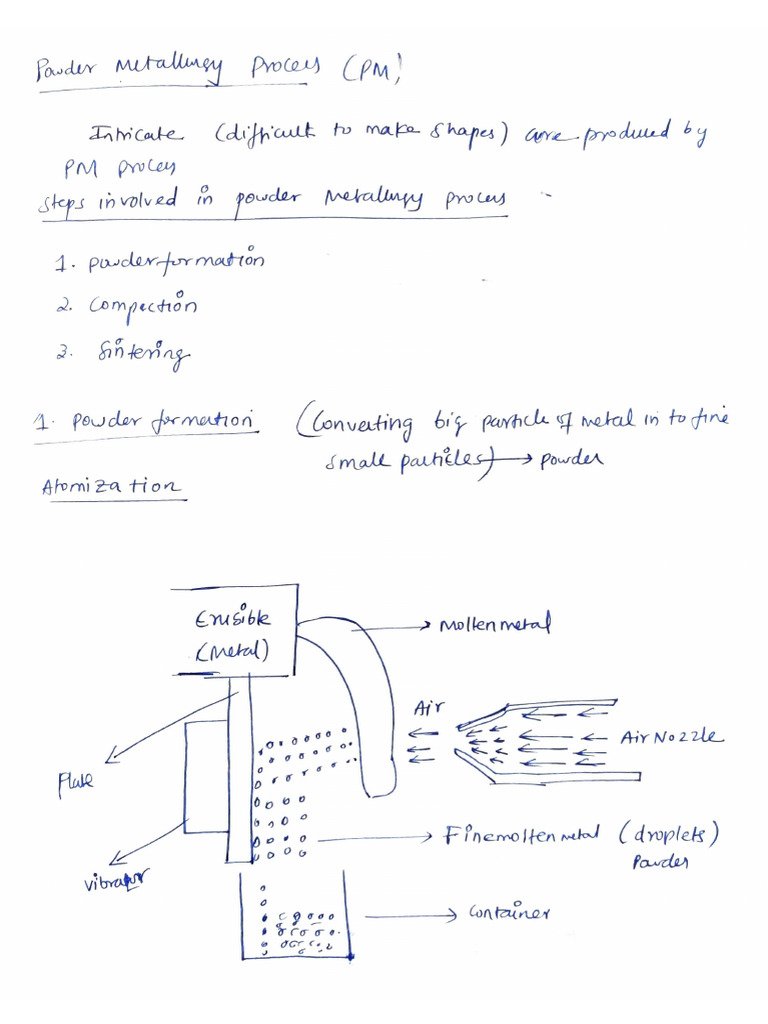 Powder Metallurgy Process (PM)
Intricate (difficult to make shapes) are produced by
PM process
Steps involved in powder Metallurgy process :-
1. powder formation
2. Compection
3. Sintering
1. Powder formation (Converting big particle of metal in to fine
small particles) → powder
Atomization
Crusible
(Metal)
Molten metal
Air
Air Nozzle
Plate
Fine molten metal (droplets)
Powder
Vibrator
Container